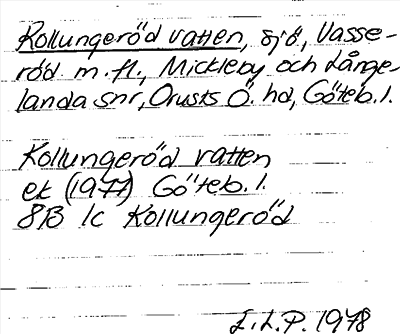 Kollungeröd vatten, sjö, Vasse-
röd m. fl., Mickleby och Långe-
landa snr, Orusts Ö. hd, Göteb. l.
Kollungeröd vatten
ek (1977) Göteb. l.
8B 1c Kollungeröd
L.L.P. 1978